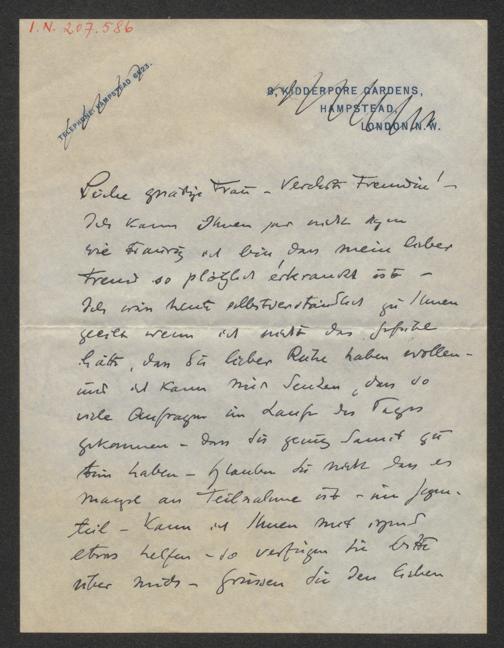 I.N. 207.586
TELEPHONE: HAMPSTEAD 6823.
9, KIDDERPORE GARDENS,
HAMPSTEAD,
LONDON, N.W.
Liebe gnädige Frau – Verehrte Freundin! –
Ich kann Ihnen gar nicht sagen
wie traurig ich bin, dass mein lieber
Freund so plötzlich erkrankt ist –
Ich wär heute selbstverständlich zu Ihnen
geeilt wenn ich nicht das Gefühl
hätte, dass Sie lieber Ruhe haben wollen –
und ich kann mir denken, dass so
viele Anfragen im Laufe des Tages
gekommen – dass Sie genug damit zu
tun haben – Glauben Sie nicht dass es
Mangel an Teilnahme ist – im Gegen-
teil – Kann ich Ihnen mit irgend
etwas helfen – so verfügen Sie bitte
über mich – Grüssen Sie den lieben